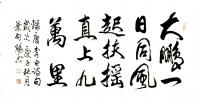 大鵬一
日同風
起扶搖
直上九
萬里
録唐李白詩句
歲次 秋月